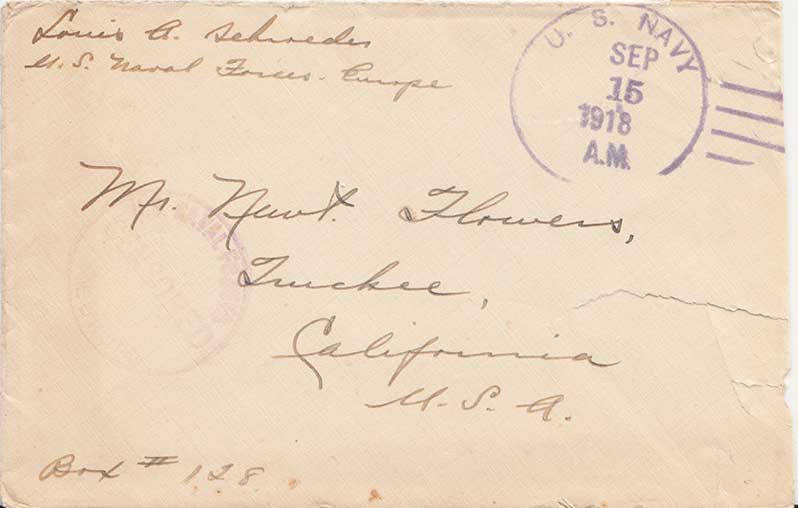 Louis A. Schroeder
U.S. Naval Forces. Europe
U. S. NAVY
SEP
15
1918
A.M.
Mr. Newt. Flowers,
Truckee,
California
U. S. A.
Box # 128